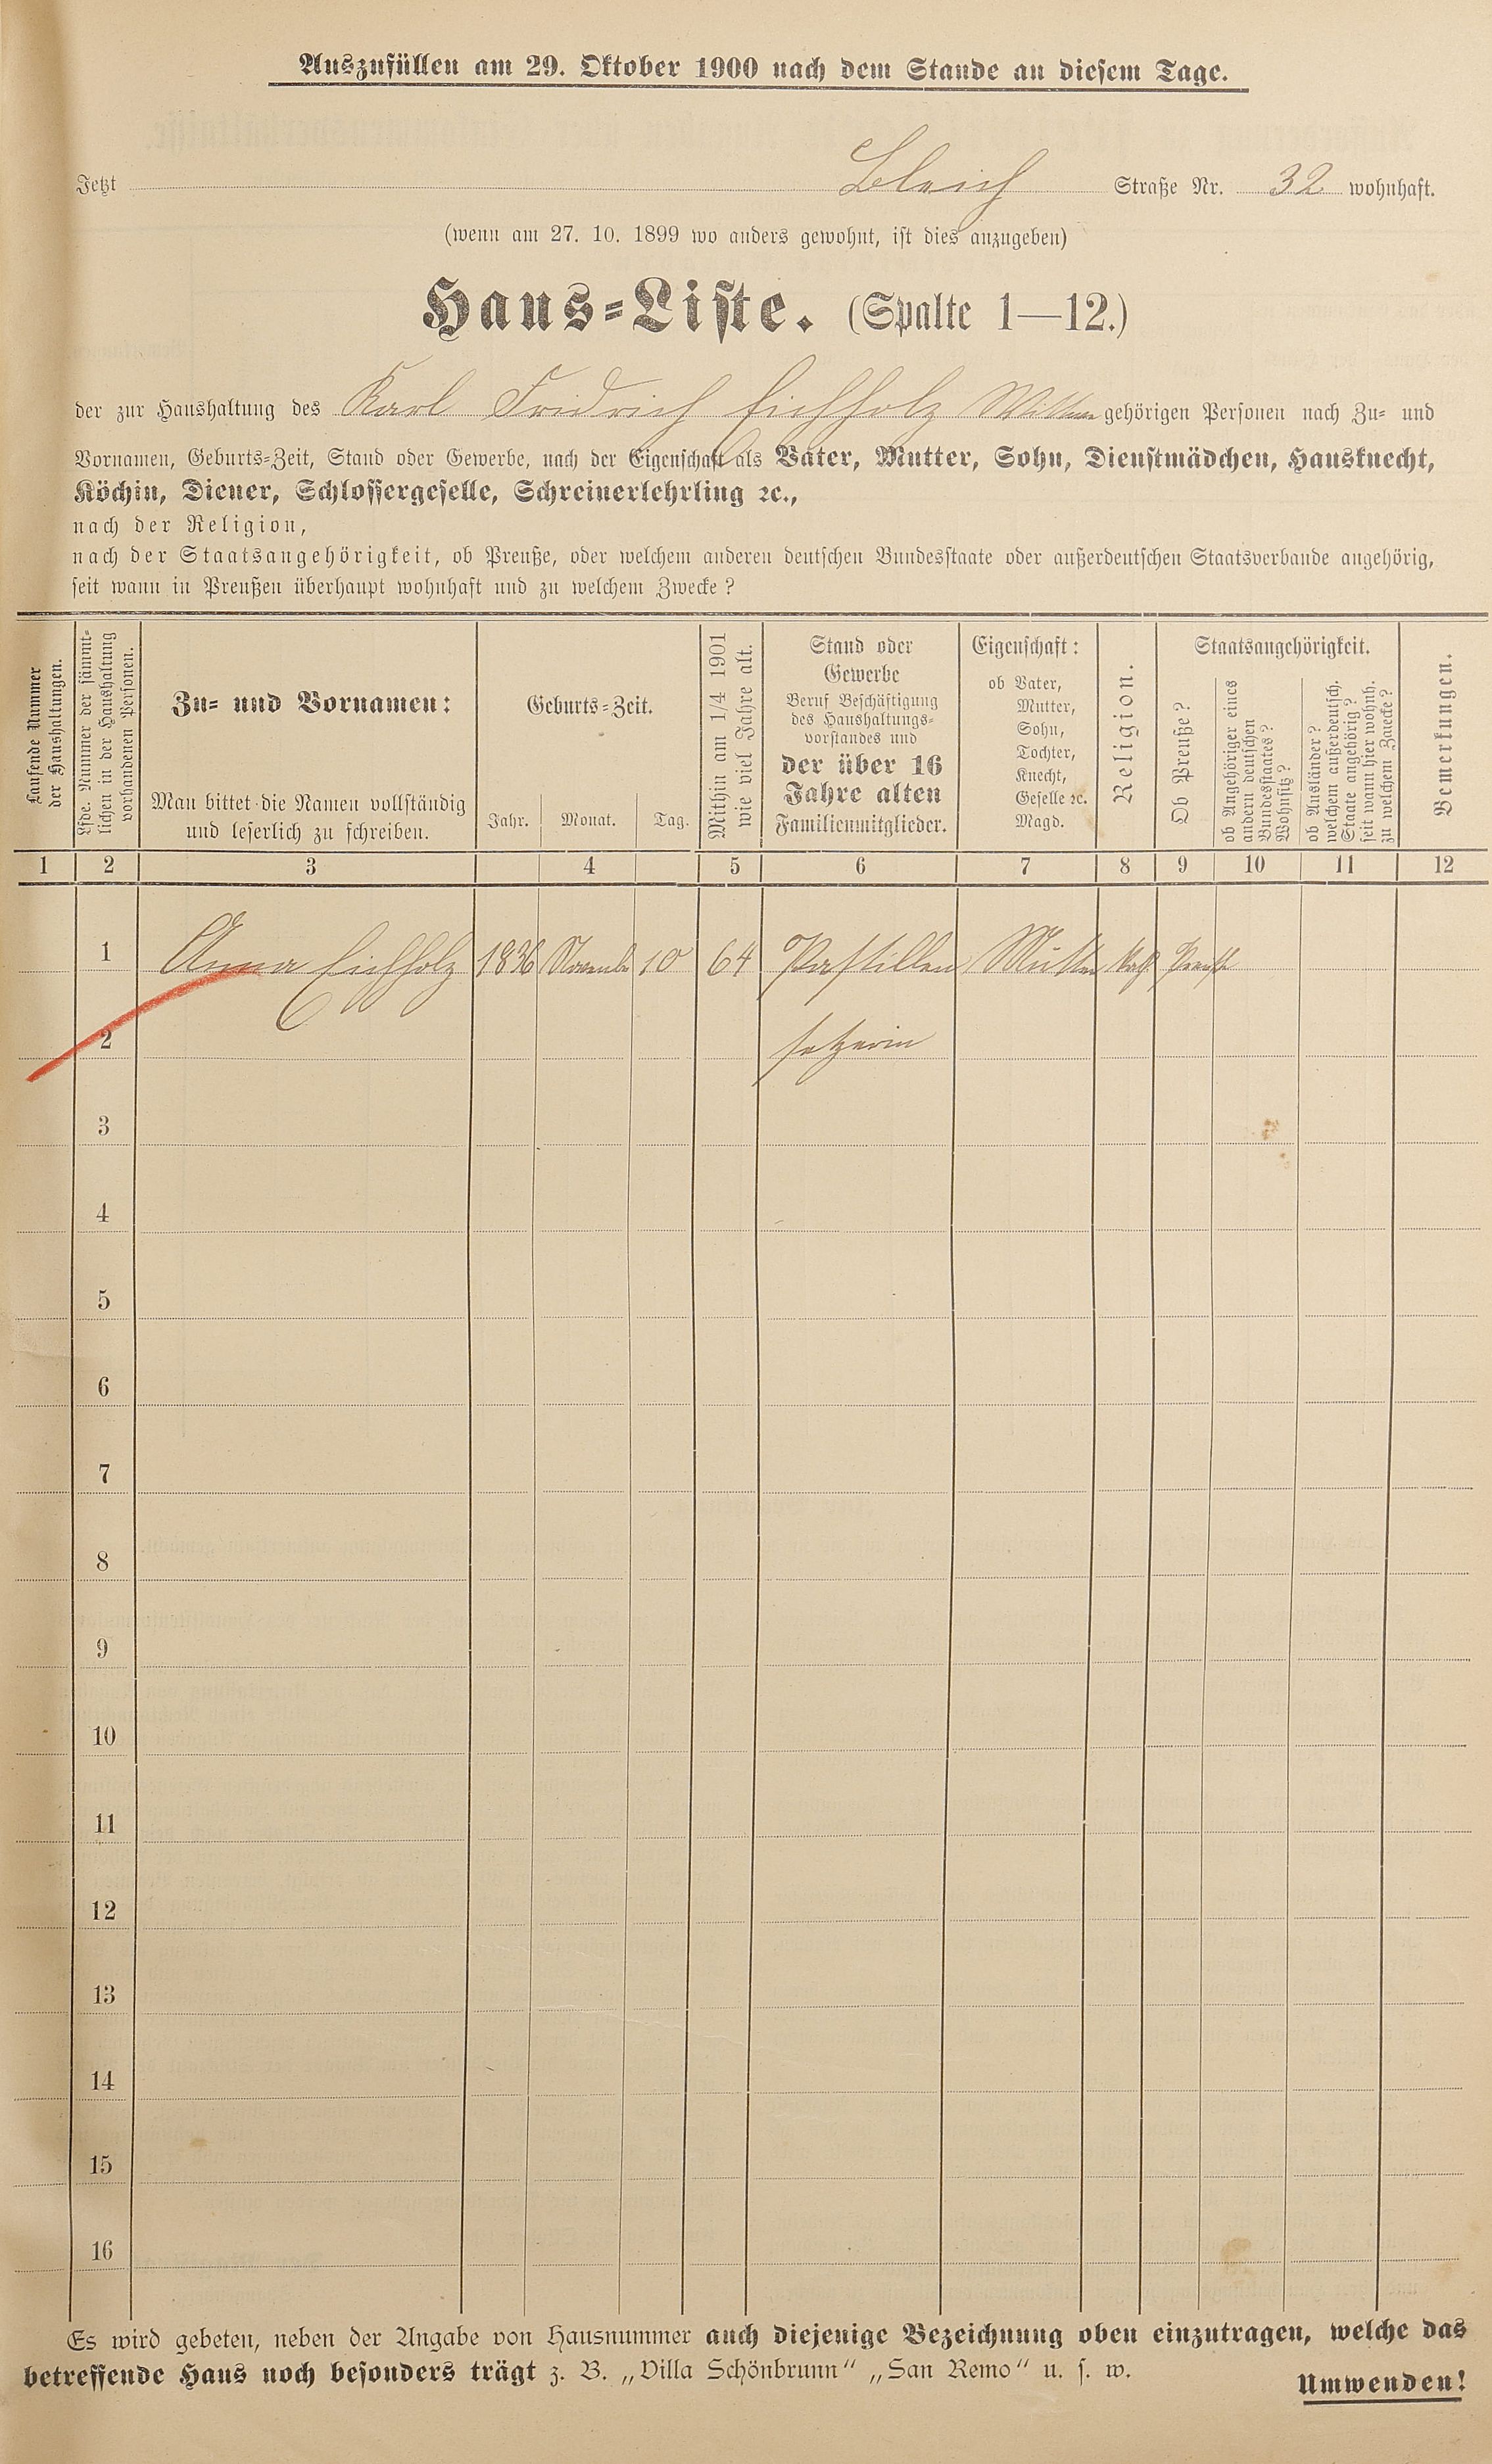 Auszufüllen am 29. Oktober 1900 nach dem Stande an diesem Tage.
Jetzt Bleich Straße Nr. 32 wohnhaft.
(wenn am 27. 10. 1899 wo anders gewohnt, ist dies anzugeben)
Haus-Liste. (Spalte 1—12.)
der zur Haushaltung des Karl Fridrich Eichholz gehörigen Personen nach Zu- und
Vornamen, Geburts-Zeit, Stand oder Gewerbe, nach der Eigenschaft als Vater, Mutter, Sohn, Dienstmädchen, Hausknecht,
Köchin, Diener, Schlossergeselle, Schreinerlehrling ꝛc.,
nach der Religion,
nach der Staatsangehörigkeit, ob Preuße, oder welchem anderen deutschen Bundesstaate oder außerdeutschen Staatsverbande angehörig,
seit wann in Preußen überhaupt wohnhaft und zu welchem Zwecke?
Laufende Nummer
der Haushaltungen.
Lfde. Nummer der sämmt-
lichen in der Haushaltung
vorhandenen Personen.
Zu- und Vornamen:
Man bittet die Namen vollständig
und leserlich zu schreiben.
Geburts-Zeit.
Jahr. Monat. Tag.
Mithin am 1/4 1901
wie viel Jahre alt.
Stand oder
Gewerbe
Beruf Beschäftigung
des Haushaltungs-
vorstandes und
der über 16
Jahre alten
Familienmitglieder.
Eigenschaft:
ob Vater,
Mutter,
Sohn,
Tochter,
Knecht,
Geselle ꝛc.
Magd.
Religion.
Staatsangehörigkeit.
Ob Preuße?
ob Angehöriger eines
andern deutschen
Bundesstaates?
Wohnsitz?
ob Ausländer?
welchem außerdeutsch.
Staate angehörig?
seit wann hier wohnh.
zu welchem Zwecke?
Bemerkungen.
1 2 3 4 5 6 7 8 9 10 11 12
1 Anna Eichholz 1836 November 10 64 Pastillen Mutter kath. Preuße
2 setzerin
3
4
5
6
7
8
9
10
11
12
13
14
15
16
Es wird gebeten, neben der Angabe von Hausnummer auch diejenige Bezeichnung oben einzutragen, welche das
betreffende Haus noch besonders trägt z. B. „Villa Schönbrunn“ „San Remo“ u. s. w.
Umwenden!